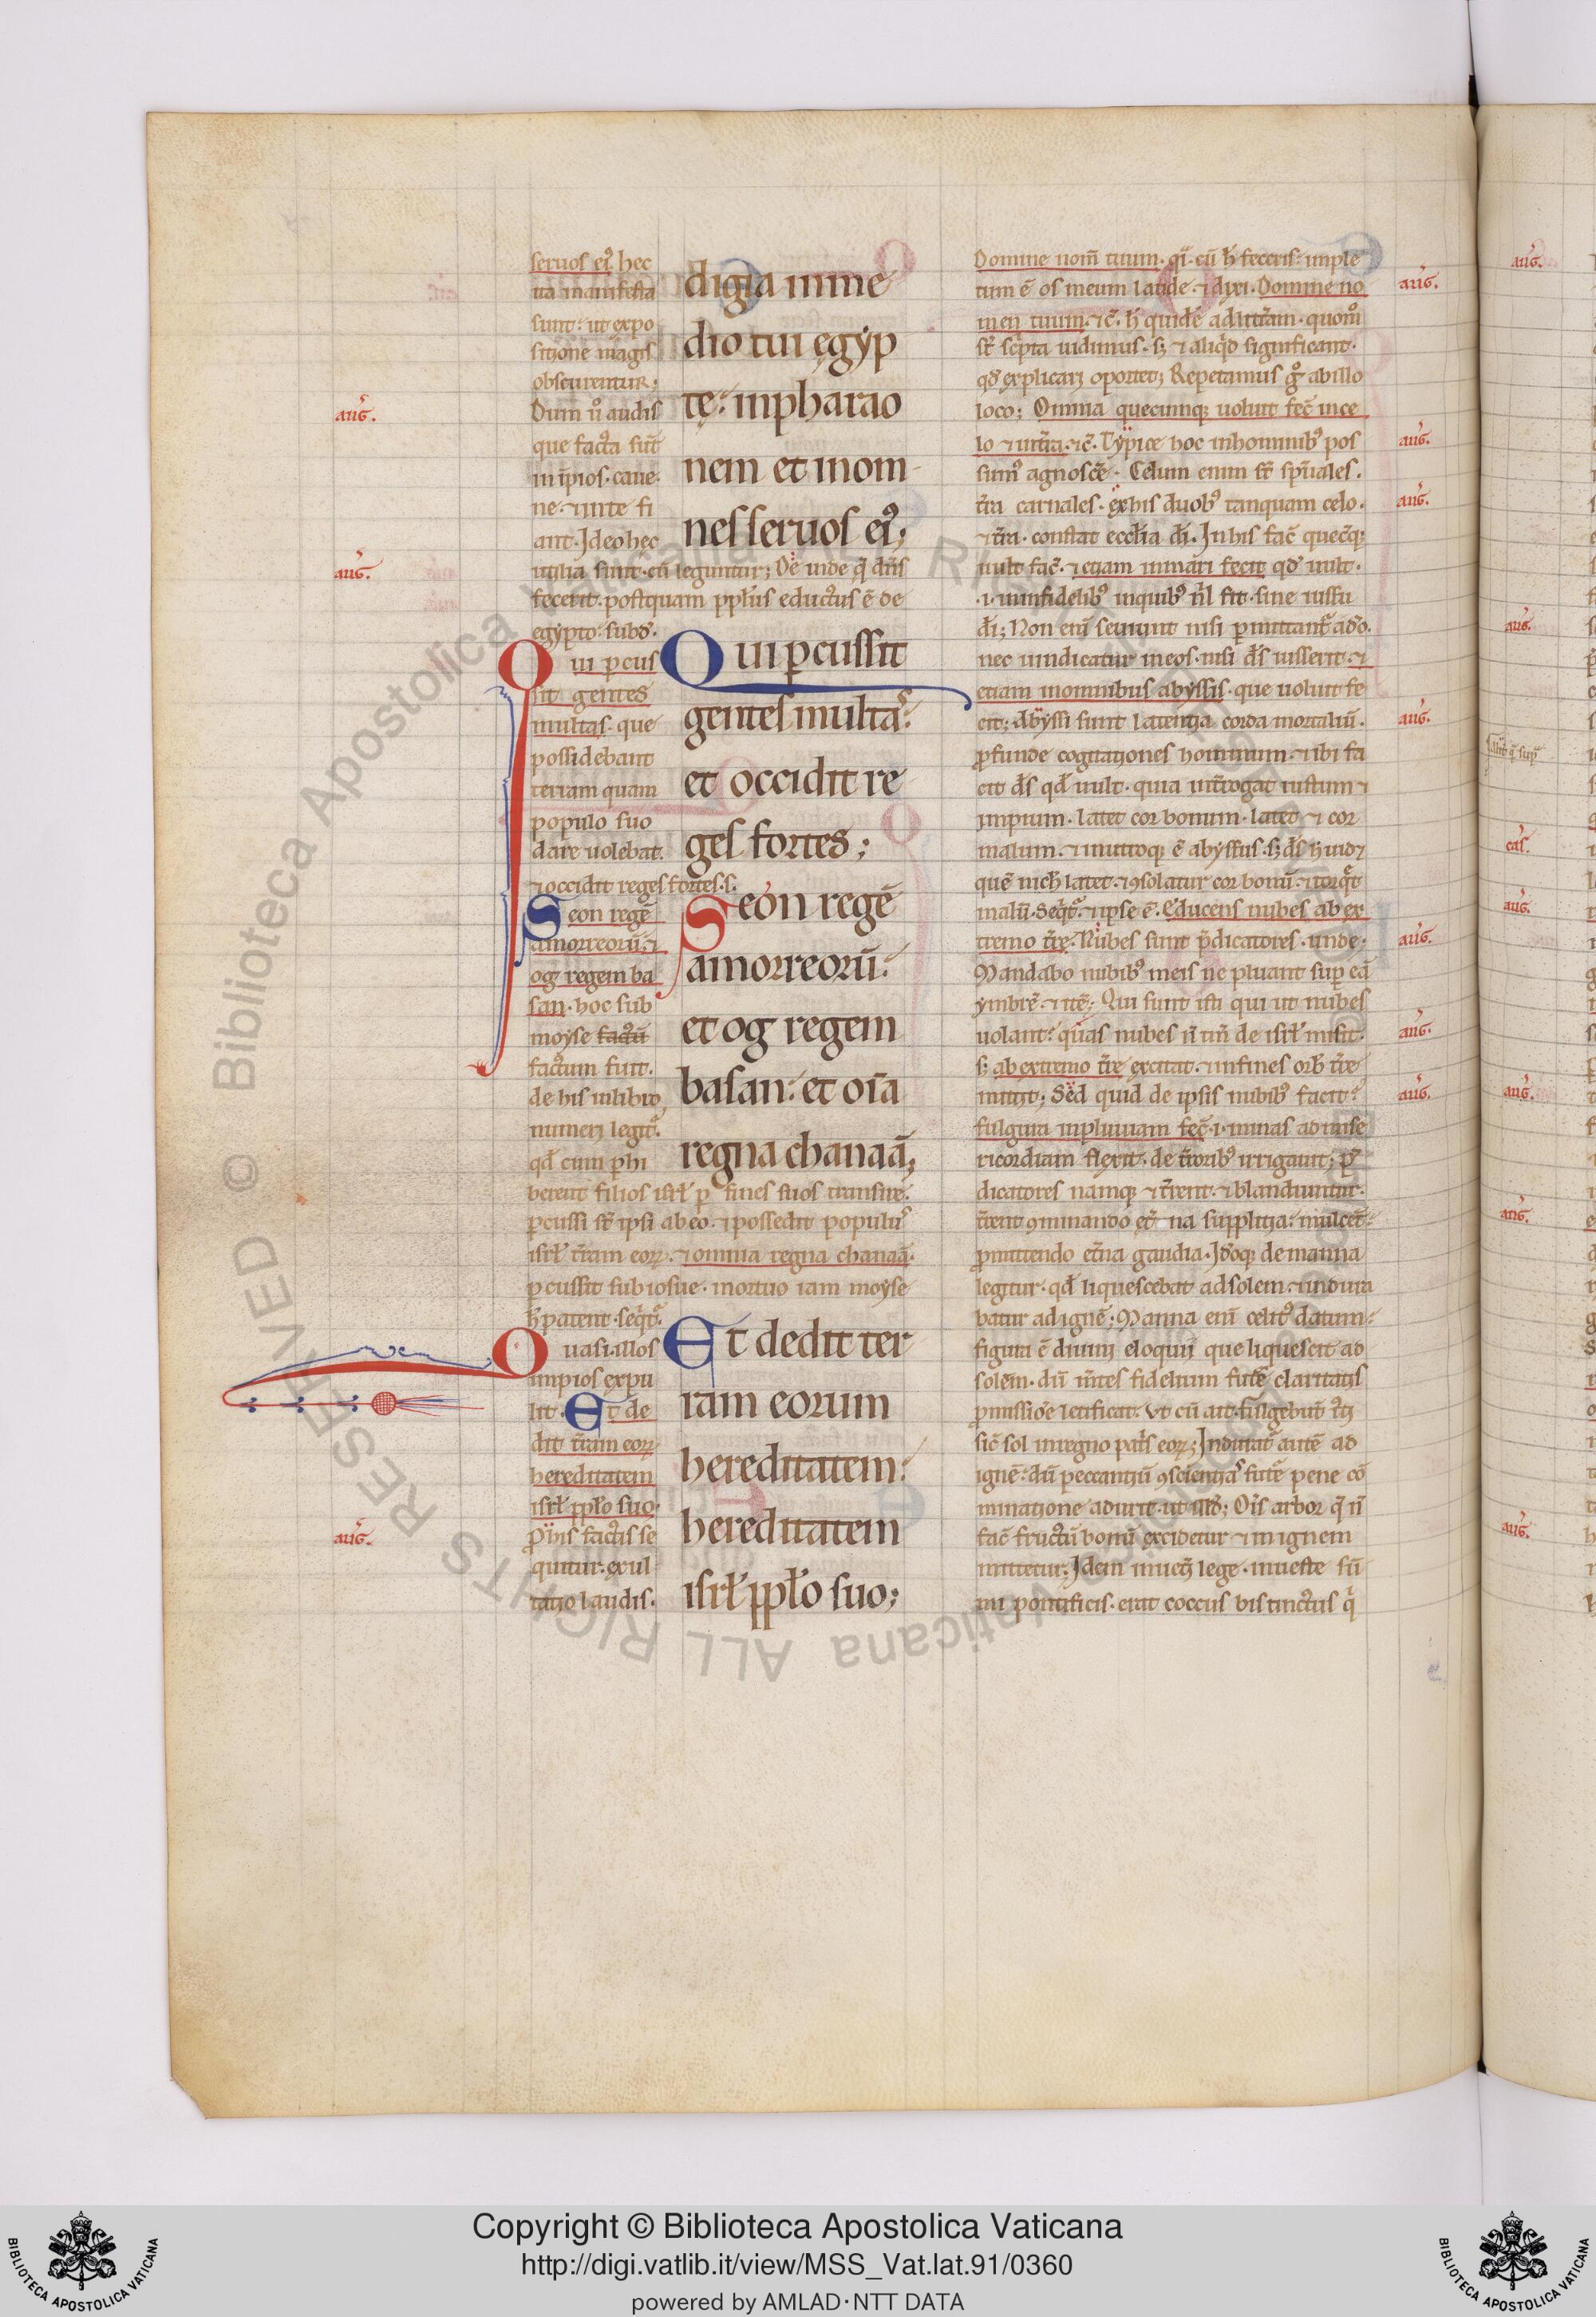 seruos ei9 hec
ita manifesta
sunt: ut expo
sitione magis
obscurentur;
Dum ů audis
que facta sūt
in īpios. caue
ne. ⁊ in te fi
ant. Ideo hec
utilia sunt. cū leguntur; Dē uide q̄ dn̄s
fecerit. postquam ppłus eductus ē de
egypto: subd'.
Qui pcus
sit gentes
multas. que
possidebant
terram quam
populo suo
dare uolebat.
⁊ occidit reges fortes. s.
Seon regē
amorreorū. ⁊
og regem ba
san. hoc sub
moyse factū
factum fuit.
de his in libro
numeri legit̄.
qđ cum phi
berent filios isrł p fines suos transire.
pcussi st̄ ipsi ab eo. ⁊ possedit populus
isrł t̄ram eoꝝ. ⁊ omnia regna chanaā.
pcussit sub iosue. mortuo iam moyse
h̄ patent. seqt̄.
Quasi illos
impios expu
lit. Et de
dit t̄ram eoꝝ
hereditatem
isrł ppło suo.
P hiis factis se
quitur. exul
tatio laudis.
digia in me
dio tui egyp
tę: in pharao
nem et in om
nes seruos ei9;
Qui pcussit
gentes multas:
et occidit re
ges fortes;
Seon regē
amorreorū:
et og regem
basan: et oīa
regna chanaā;
Et dedit ter
ram eorum
hereditatem:
hereditatem
isrł ppło suo;
Domine nom̄ tuum. qi. cū h̄ feceris: imple
tum ē os meum laude. ⁊ dixi. Domine no
men tuum. ⁊c̄. h̄ quidē ad litt̄am. quomō
st̄ sc̄pta uidimus. s; ⁊ aliqd significant.
qđ explicari oportet; Repetamus gͦ ab illo
loco; Omnia quecumq; uoluit fec̄ in ce
lo ⁊ in t̄ra. ⁊c̄. Typice hoc in hominib9 pos
sum9 agnosc̄e. Celum enim st̄ sp̄uales.
t̄ra carnales. ex his duob9 tanquam celo.
⁊ t̄ra. constat eccl̄ia di. In his fac̄ quec̄q;
uult fac̄. ⁊ etiam in mari fecit qđ uult.
.i. in infidelib9 in quib9 nl̄ fit. sine iussu
di; Non eni seuiunt nisi pmittant̄ a dō.
nec uindicatur in eos. nisi ds̄ iusserit. ⁊
etiam in omnibus abyssis. que uoluit fe
cit; Abyssi sunt latentia corda mortaliū.
pfunde cogitationes hominum. ⁊ ibi fa
cit ds̄ qđ uult. quia int̄rogat iustum ⁊
impium. latet cor bonum. latet ⁊ cor
malum. ⁊ in utroq; ē abyssus. s; ds̄ h̄ uidꝫ
quē nich̄ latet. ⁊ 9solatur cor bonū. ⁊ torqt̄
malū. Seqt̄. ⁊ ipse ē. Educens nubes ab ex
tremo t̄re. Nubes sunt p̄dicatores. unde;
Mandabo nubib9 meis ne pluant sup eā
ymbrē. ⁊ itē; Qui sunt isti qui ut nubes
uolant? quas nubes ñ tm̄ de isrł misit.
s; ab extremo t̄re excitat. ⁊ in fines orb̄ t̄re
mittit; Sed quid de ipsis nubib9 facit?
fulgura in pluuiam fec̄. i. minas ad mise
ricordiam flexit. de t̄rorib9 irrigauit; p̄
dicatores namq; ⁊ t̄rent. ⁊ blandiuntur.
t̄rent 9minando et̄ na supplicia: mulcēt
pmittendo et̄na gaudia. Idoq; de manna
legitur. qđ liquescebat ad solem. ⁊ indura
batur ad ignē; Manna eni celit9 datum:
figura ē diuini eloquii que liquescit ad
solem. dū m̄tes fidelium fut̄e claritatis
pmissione letificat. Vt cū ait. fulgebūt iusti
sic̄ sol in regno pat̄s eoꝝ; Indurat̄ autē ad
ignē: dū peccantiū 9scientias fut̄e pene cō
minatione adurit. ut
Oīs arbor q̄ ñ
fac̄ fructū bonū excidetur ⁊ in ignem
mittetur; Idem in uet̄i lege. in ueste sū
mi pontificis. erat coccus bis tinctus q̄
aug.
aug.
aug.
aug.
aug.
aug.
aug.
aug.
aug.
aug.
aug.
Biblioteca Apostolica Vaticana ALL RIGHTS RESERVED ©
Copyright © Biblioteca Apostolica Vaticana
http://digi.vatlib.it/view/MSS_Vat.lat.91/0360
powered by AMLAD·NTT DATA
BIBLIOTECA APOSTOLICA VATICANA
BIBLIOTECA APOSTOLICA VATICANA